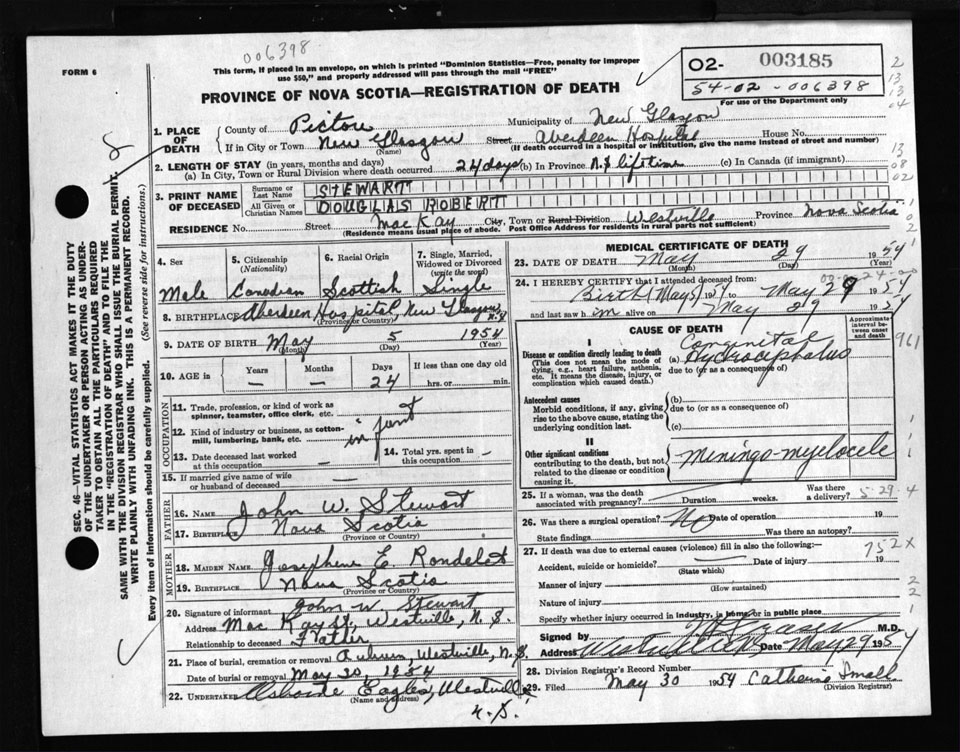 006398
FORM 6
This form, if placed in an envelope, on which is printed "Dominion Statistics—Free, penalty for improper
use $50," and properly addressed will pass through the mail "FREE"
PROVINCE OF NOVA SCOTIA—REGISTRATION OF DEATH
02- 003185
54-02-006398
For use of the Department only
2
13
13
04
13
08
02
SEC. 46—VITAL STATISTICS ACT MAKES IT THE DUTY
OF THE UNDERTAKER OR PERSON ACTING AS UNDER-
TAKER TO OBTAIN ALL THE PARTICULARS REQUIRED
IN THE "REGISTRATION OF DEATH" AND TO FILE THE
SAME WITH THE DIVISION REGISTRAR WHO SHALL ISSUE THE BURIAL PERMIT.
WRITE PLAINLY WITH UNFADING INK. THIS IS A PERMANENT RECORD.
Every item of Information should be carefully supplied. (See reverse side for instructions.)
1. PLACE OF DEATH
County of Pictou Municipality of New Glasgow
If in City or Town New Glasgow Street Aberdeen Hospital House No.
(Name) (If death occurred in a hospital or institution, give the name instead of street and number)
2. LENGTH OF STAY (in years, months and days)
(a) In City, Town or Rural Division where death occurred 24 days (b) In Province N.S lifetime (c) In Canada (if immigrant)
3. PRINT NAME OF DECEASED
Surname or Last Name STEWART
All Given or Christian Names DOUGLAS ROBERT
RESIDENCE No. Street MacKay City, Town or Rural Division Westville Province Nova Scotia
(Residence means usual place of abode. Post Office Address for residents in rural parts not sufficient)
4. Sex
Male
5. Citizenship
(Nationality)
Canadian
6. Racial Origin
Scottish
7. Single, Married, Widowed or Divorced
(write the word)
Single
8. BIRTHPLACE Aberdeen Hospital, New Glasgow, N.S
(Province or Country)
9. DATE OF BIRTH May 5 1954
(Month) (Day) (Year)
10. AGE in Years Months Days If less than one day old
— — 24 hrs. or min.
OCCUPATION
11. Trade, profession, or kind of work as
spinner, teamster, office clerk, etc.
12. Kind of industry or business, as cotton-
mill, lumbering, bank, etc. infant
13. Date deceased last worked
at this occupation —
14. Total yrs. spent in
this occupation —
15. If married give name of wife
or husband of deceased —
FATHER
16. NAME John W. Stewart
17. BIRTHPLACE Nova Scotia
(Province or Country)
MOTHER
18. MAIDEN NAME Josephene E. Rondelet
19. BIRTHPLACE Nova Scotia
(Province or Country)
20. Signature of informant John W. Stewart
Address Mac Kay St. Westville, N.S.
Relationship to deceased Father
21. Place of burial, cremation or removal Auburn, Westville, N.S.
Date of burial or removal May 30, 1954
22. UNDERTAKER Osborne Eagles, Westville
(Name and address)
N.S.
MEDICAL CERTIFICATE OF DEATH
23. DATE OF DEATH May 29 1954
(Month) (Day) (Year)
24. I HEREBY CERTIFY that I attended deceased from:
Birth (May 5) 1954 to May 29 1954
and last saw him alive on May 29 1954
CAUSE OF DEATH
Approximate interval between onset and death
961
I
Disease or condition directly leading to death
(This does not mean the mode of
dying, e.g., heart failure, asthenia,
etc. It means the disease, injury, or
complication which caused death.)
(a) Congenital Hydrocephalus
due to (or as a consequence of)
Antecedent causes
Morbid conditions, if any, giving
rise to the above cause, stating the
underlying condition last.
(b)
due to (or as a consequence of)
(c)
II
Other significant conditions
contributing to the death, but not
related to the disease or condition
causing it.
Miningo-myelocele
25. If a woman, was the death
associated with pregnancy? Duration weeks. Was there a delivery?
5-29 4
26. Was there a surgical operation? No Date of operation 19
State findings Was there an autopsy?
27. If death was due to external causes (violence) fill in also the following:—
752 X
Accident, suicide or homicide? Date of injury 19
(State which)
Manner of injury
(How sustained)
Nature of injury
Specify whether injury occurred in industry, in home, or in public place
Signed by Fraser M.D.
Address Westville Date May 29 1954
28. Division Registrar's Record Number
29. Filed May 30 1954 Catherine Small
(Division Registrar)